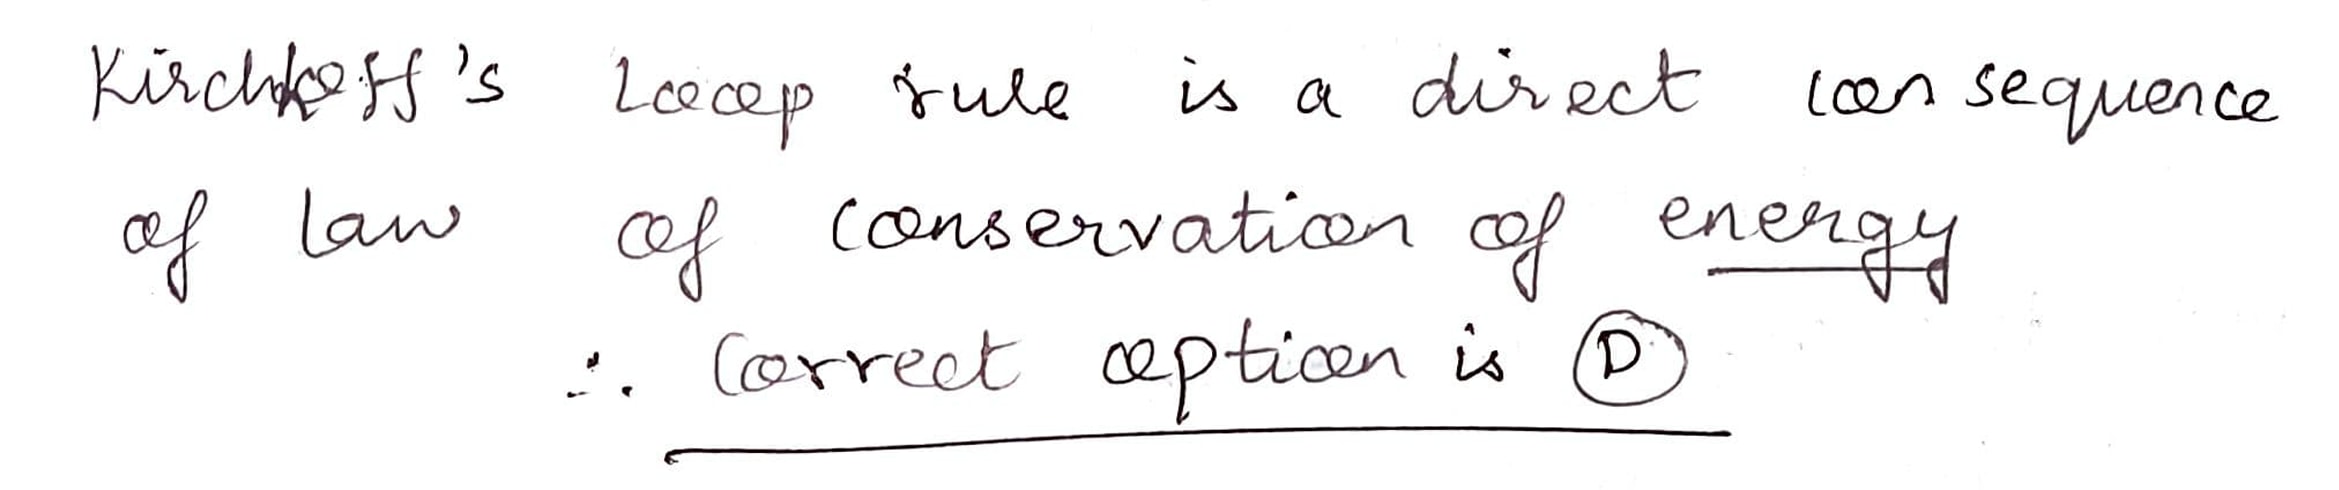 Kirchhoff's Loop rule is a direct consequence
of law of conservation of energy
∴ Correct option is D